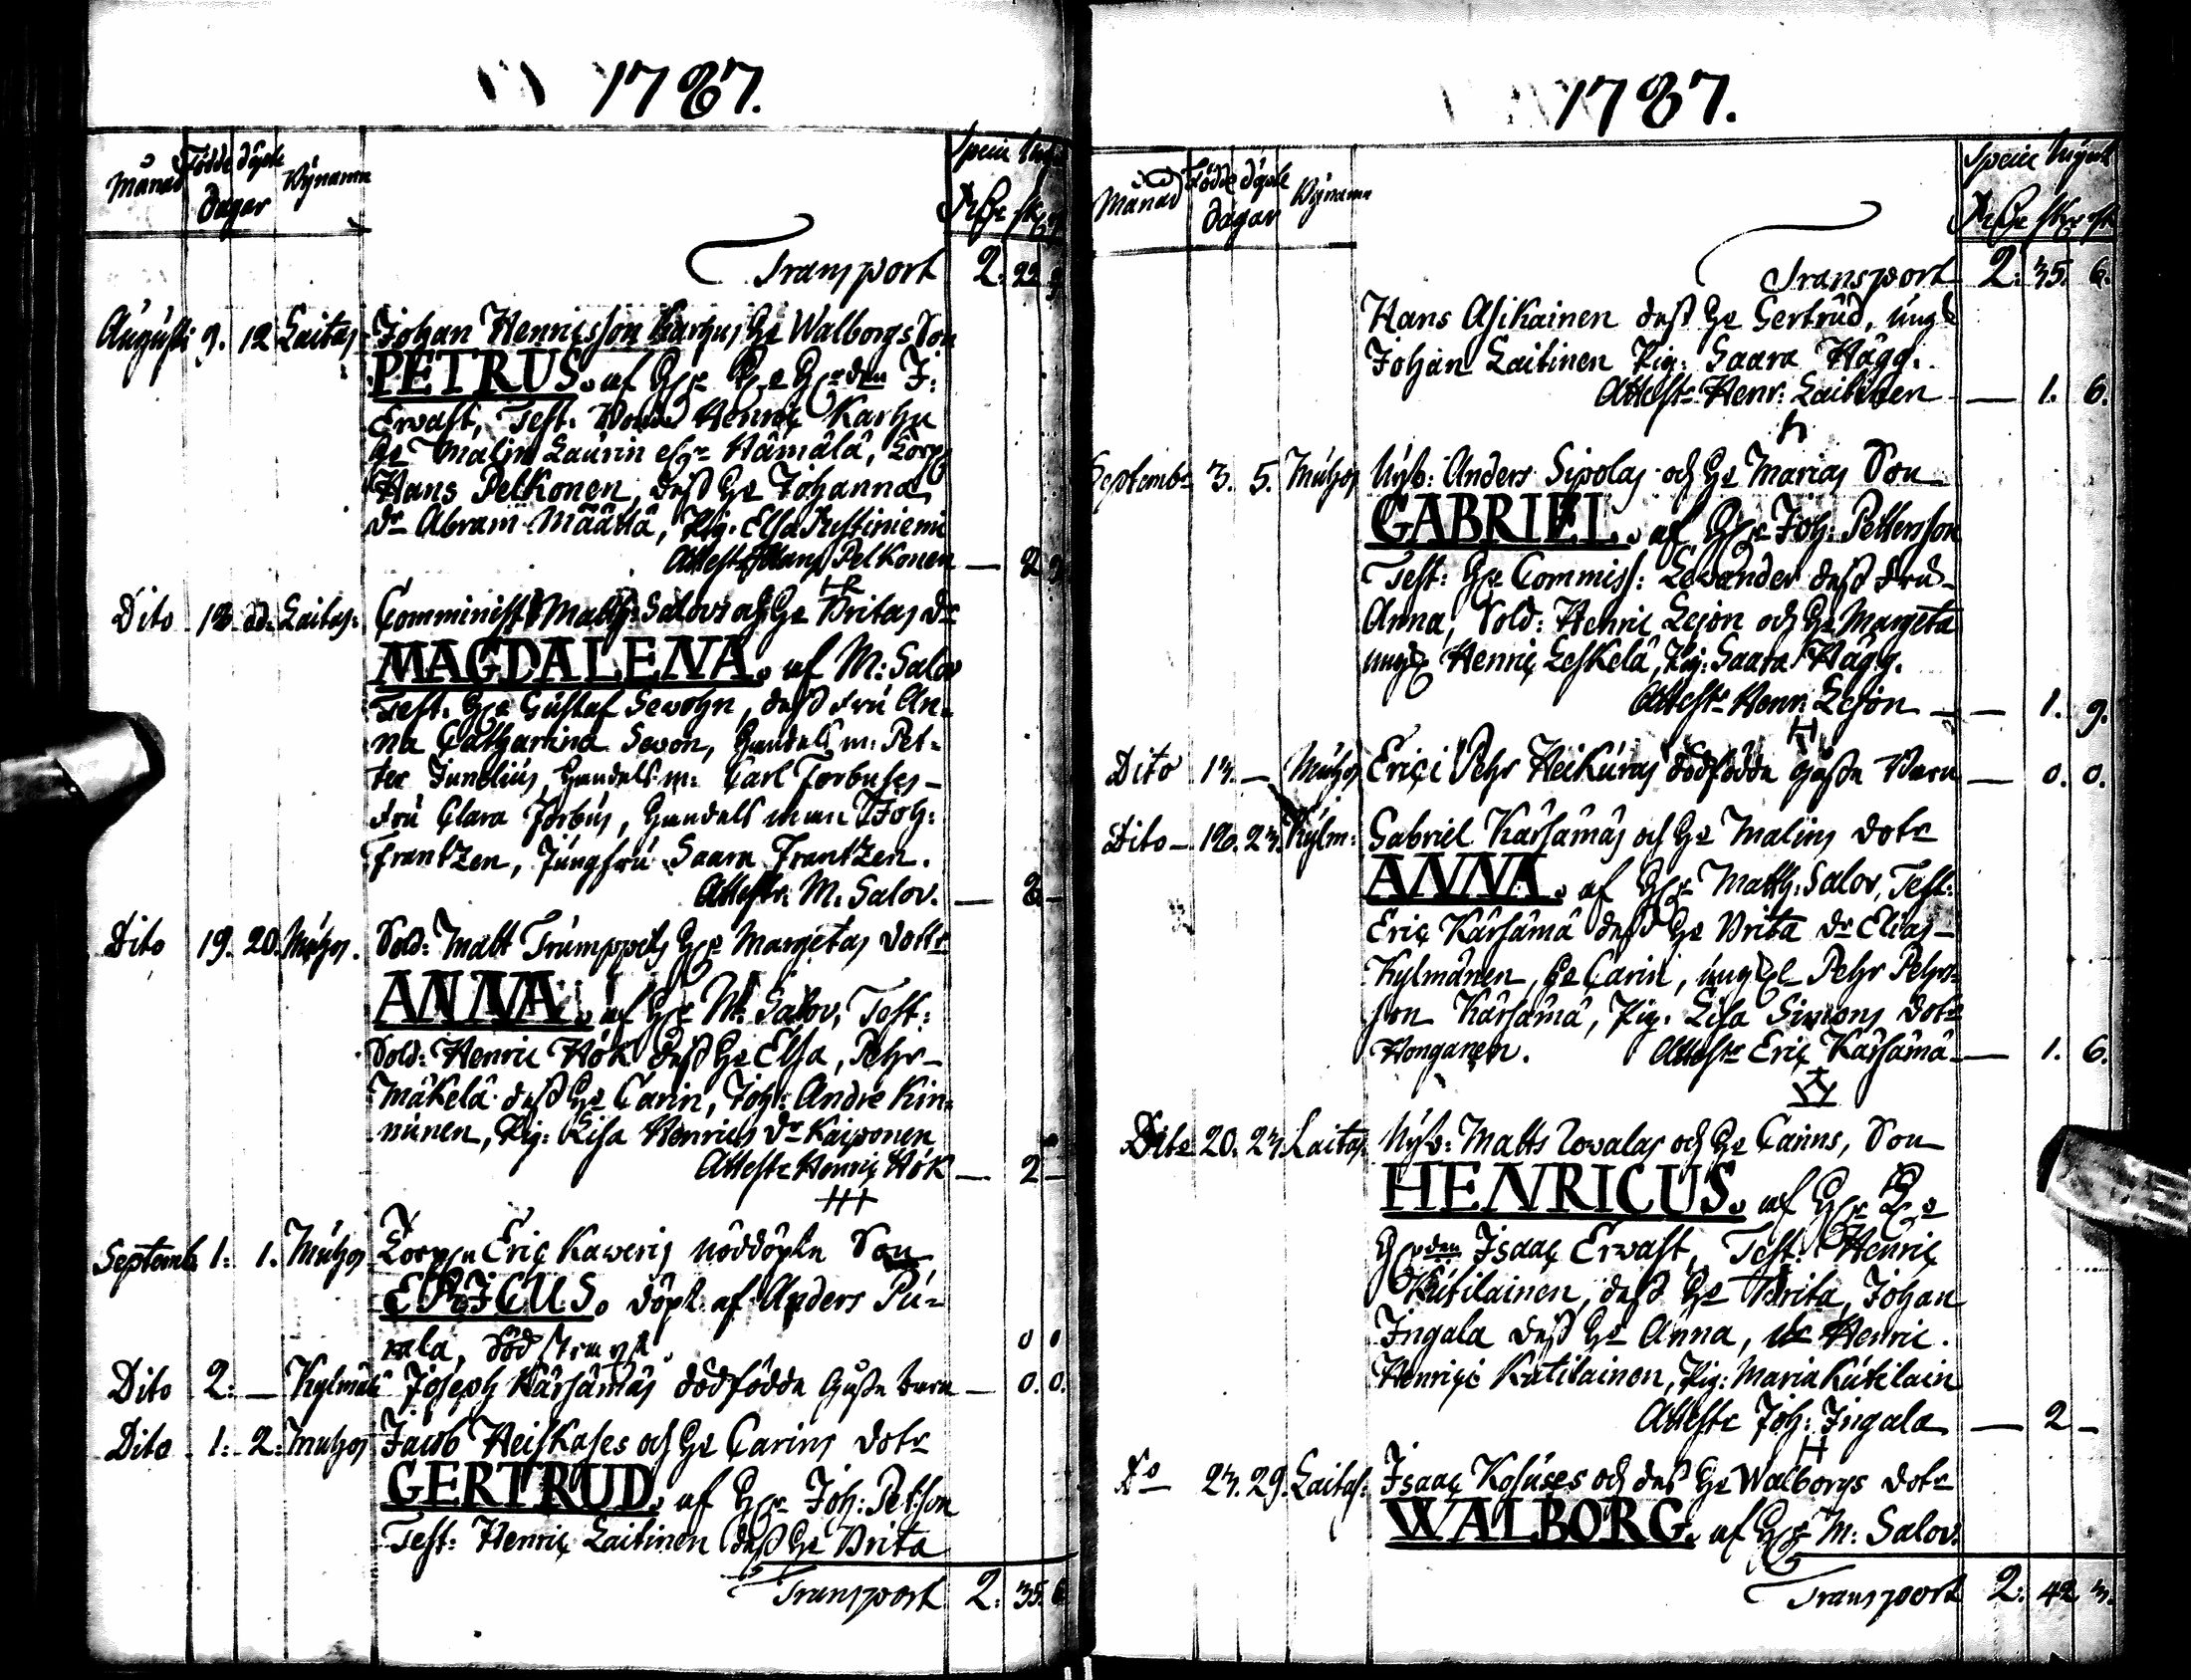 1787.
Månad Födde döpte Bÿnamn Specie Mynt
dagar RDr sk: rst
Transport 2. 22. 9
Augusti 9. 12 Laitas: Johan Henricsson Karhus H:e Walborgs Son
PETRUS. af H:r
Erwast, Test. Henric Karhu
H:u Malin Laurin Hämälä, Corp:
Hans Pelkonen, dess H:u Johanna
Abram Määttä, Pig. Elsa Ruskiniemi
Attest: Hans Pelkonen — 2 9
Dito 12 dd: Laitas: Comminist: Matth: Salovs och H:u Britas Dr
MAGDALENA. af M: Salov
Test. H:r Gustaf Sewohn, dess Fru An-
na Catharina Sewon, Handels m: Pet-
ter Junelius, Handels m: Carl Forbuses
Fru Clara Forbus, Handels man Joh:
Frantzen, Jungfru Saara Frantzen.
Attest: M. Salov. — 2 —
Dito 19. 20. Muhos. Sold: Matt Trumppets H:u Margetas dott:r
ANNA. af H:r M: Salov, Test:
Sold: Henric Hök dess H:u Elsa, Pehr
Mäkelä dess H:u Carin, Joh: Andre Kin-
nunen, Pig: Lisa Henrics Dr Kaiponen
Attest: Henric Hök — 2 —
Septemb: 1: 1. Muhos Corp:n Eric Kaweris nöddöpte Son
ERICUS. döpt af Anders Pu-
rala, död strax 0 0
Dito 2: — Kylmälä Joseph Kärsämäs dödfödde Gosse barn — 0. 0.
Dito 1: 2: Muhos Jacob Heiskases och H:u Carins dotr
GERTRUD. af H:r Joh: Petsson
Test: Henric Laitinen dess H:u Brita
Transport 2. 35. 6
1787.
Månad Födde döpte Bÿnamn Specie Mynt
dagar RDr sk: rst
Transport 2: 35. 6.
Hans Asikainen dess H:u Gertrud, ung:
Johan Laitinen Pig: Saara Hägg.
Attest: Henr: Laitinen — 1. 6.
Septemb: 3. 5. Muhos Nyb: Anders Sipolas och H:u Marias Son
GABRIEL. af H:r Joh: Pettersson
Test: H:r Commiss: Lewander dess Fru
Anna, Sold: Henric Lejon och H:u Margeta
ung: Henric Leskelä, Pig: Saara Hägg.
Attest: Henr: Lejon — 1. 9.
Dito 13. — Muhos Erici Pehr Heikuras dödfödde gosse Barn — 0. 0.
Dito 19. 23. Kylm: Gabriel Kärsämäs och H:u Malins dotr
ANNA. af H:r Matth: Salov, Test:
Eric Kärsämä dess H:u Brita Dr Elias
Kylmänen, H:u Carin, ung: Pehr Pehrs-
son Kärsämä, Pig. Lisa Simons dotr
Honganen. Attest: Eric Kärsämä — 1. 6.
Dito 20. 23. Laitas: Nyb: Matts Rovalas och H:u Carins, Son
HENRICUS. af H:r
Isaac Erwast, Test: Henric
Kutilainen, dess H:u Brita, Johan
Ingala dess H:u Anna, Henric
Henrici Kutilainen, Pig: Maria Kutilain
Attest: Joh: Ingala — 2 —
Do 23. 29. Laitas: Isaac Kosuses och dess H:u Walborgs dotr
WALBORG. af H:r M: Salov.
Transport 2. 42 3.